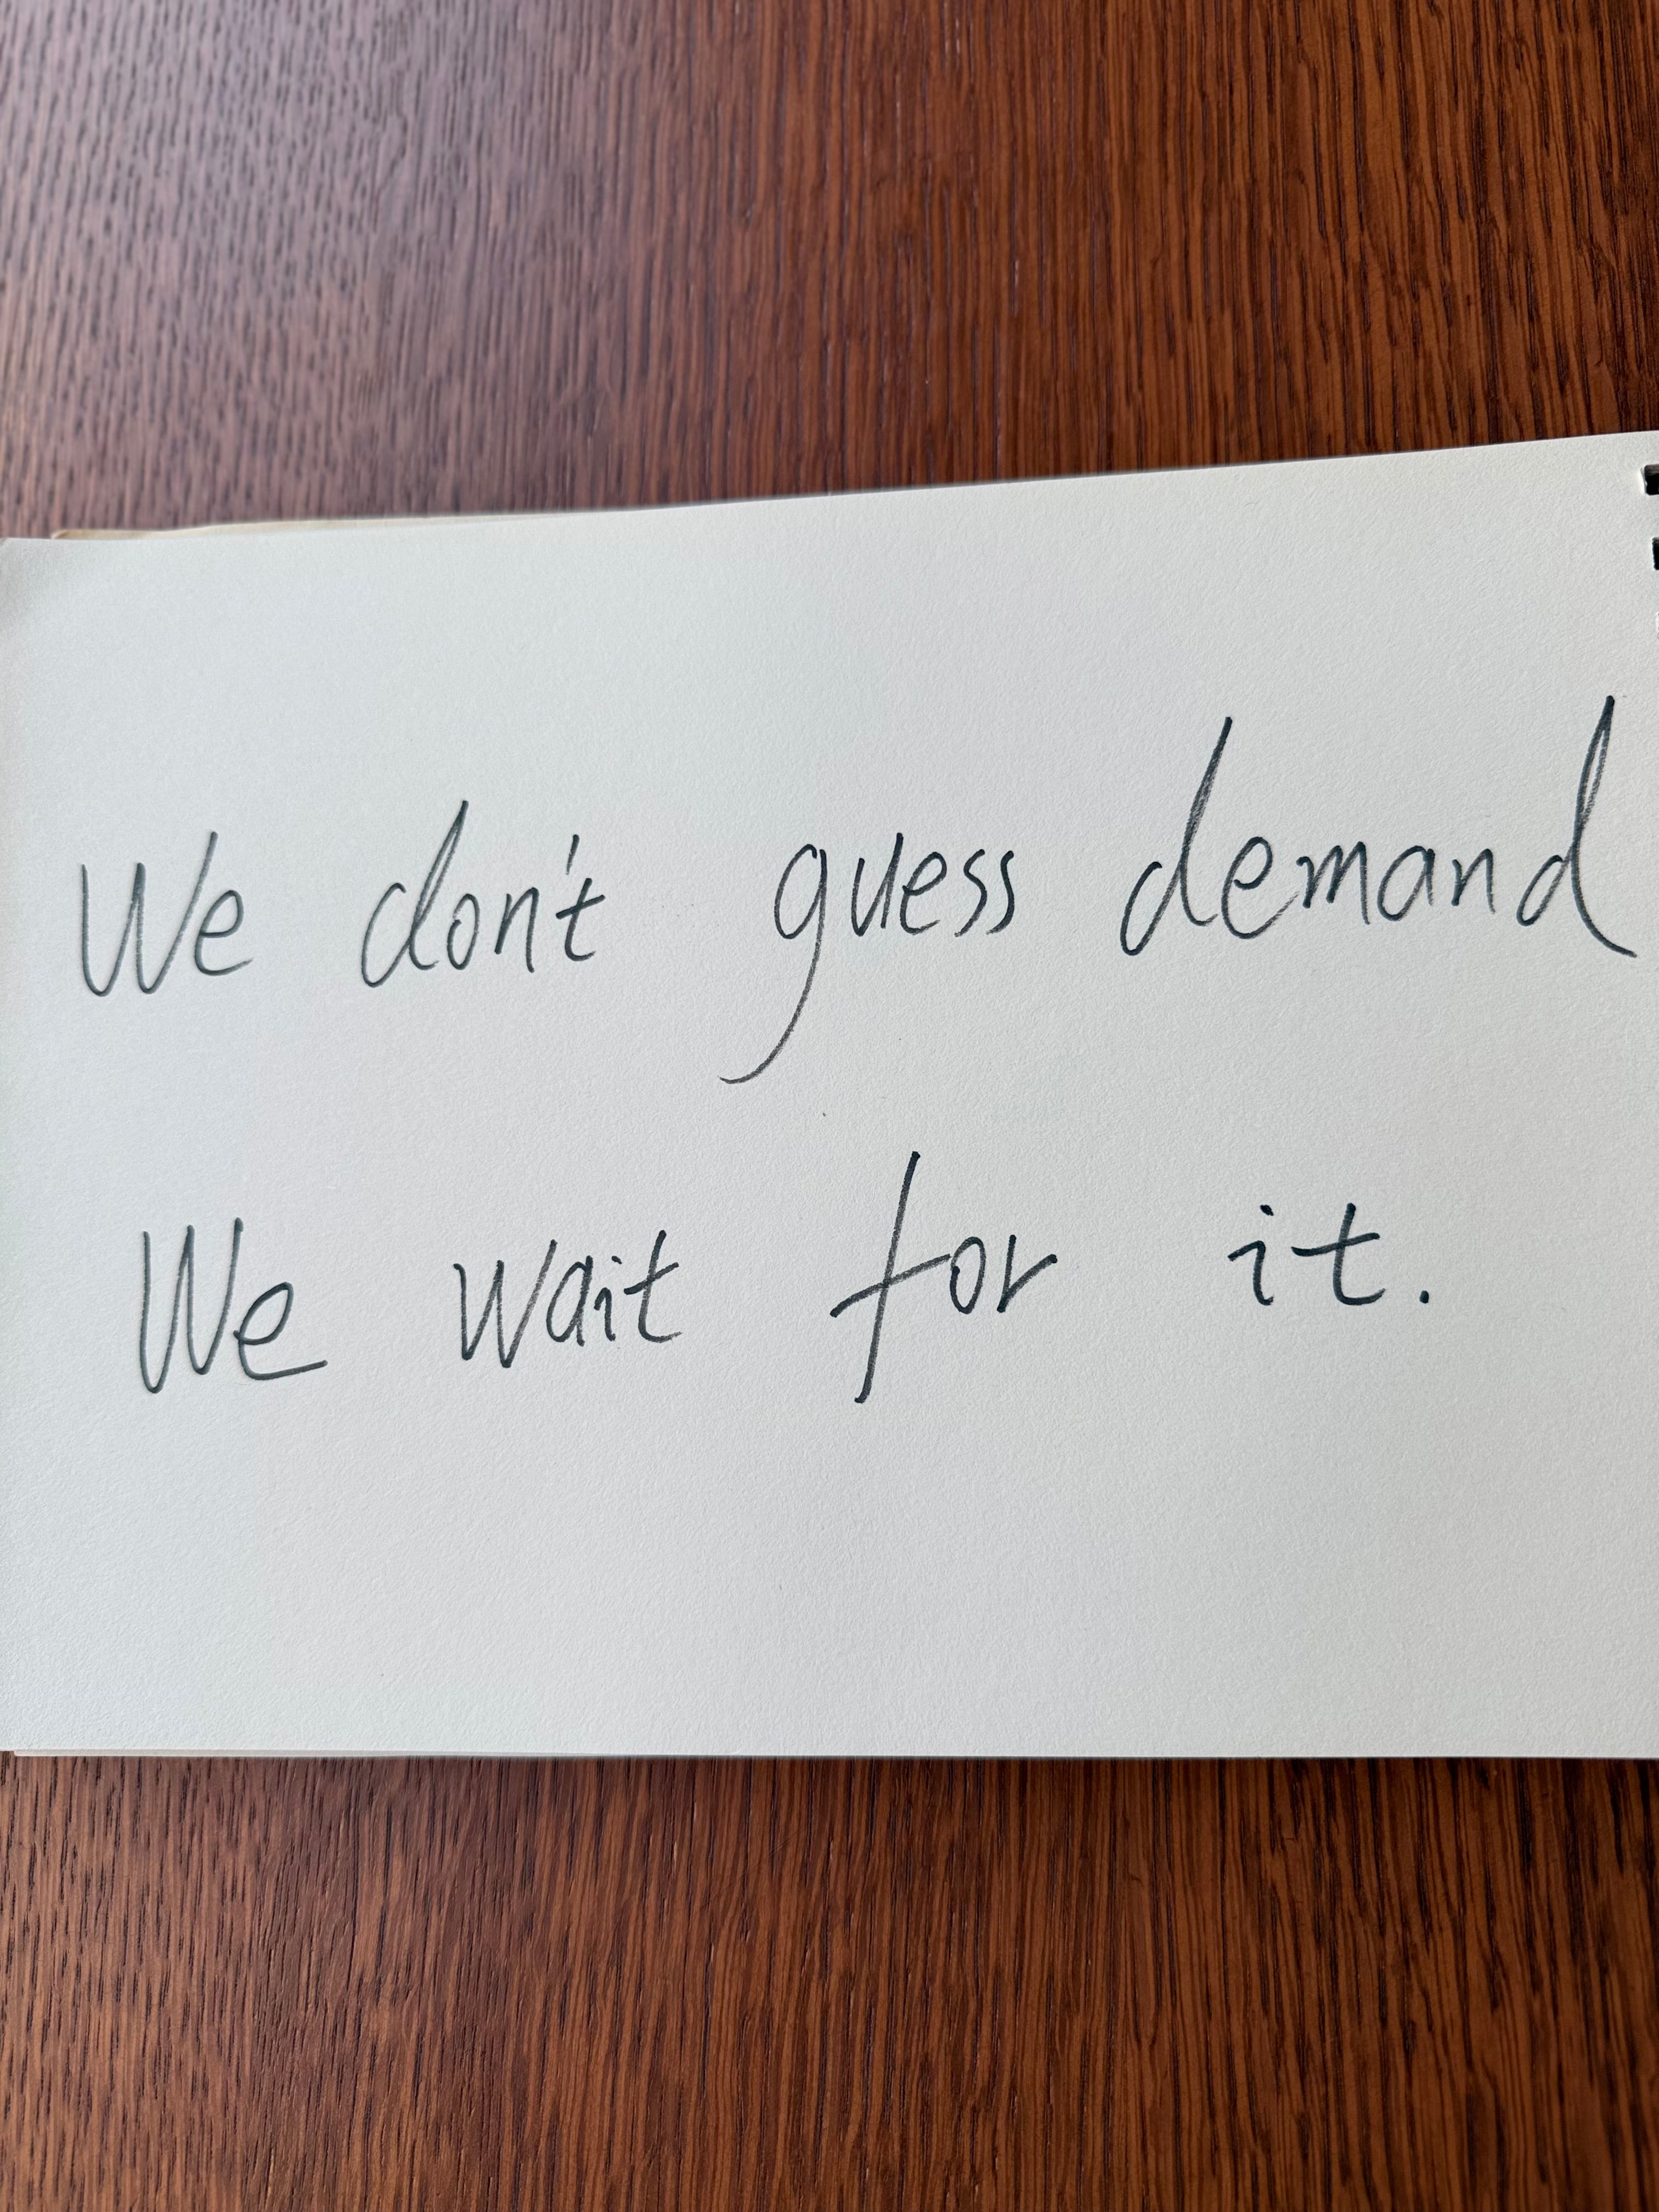 We don't guess demand
We wait for it.